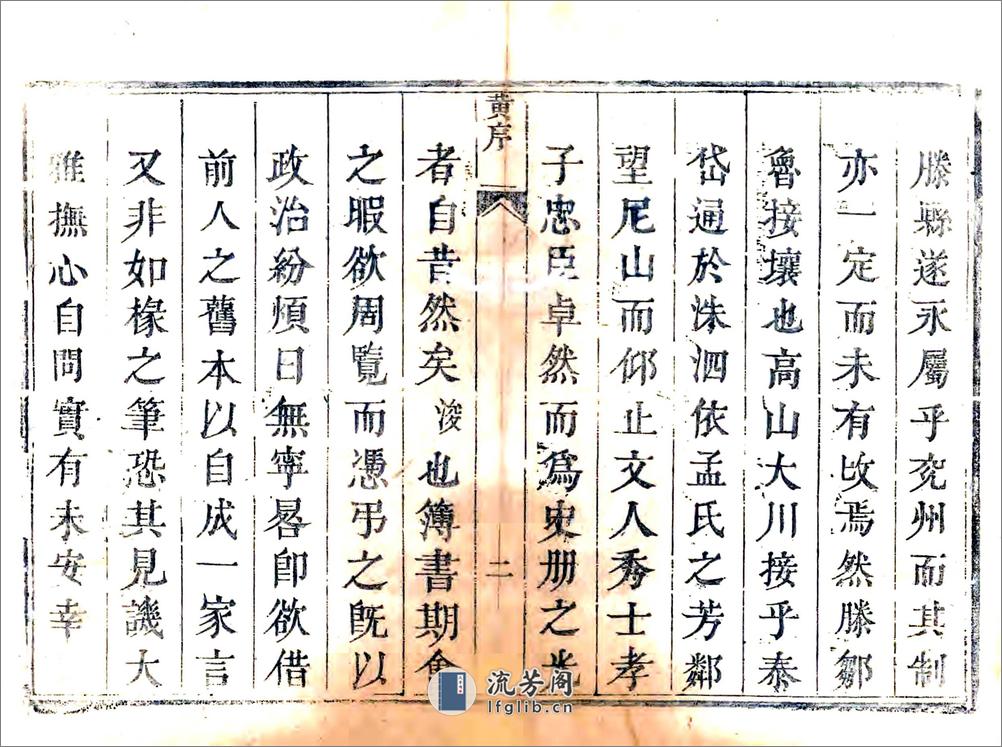 滕縣遂永屬乎兖州而其制
亦一定而未有攺焉然滕鄒
魯接壤也高山大川接乎泰
岱通於洙泗依孟氏之芳鄰
望尼山而仰止文人秀士孝
子忠臣卓然而爲史册之光
黃序
二
者自昔然矣浚也簿書期會
之暇欲周覽而憑弔之旣以
政治紛煩日無寧晷卽欲借
前人之舊本以自成一家言
又非如椽之筆恐其見譏大
雅撫心自問實有未安幸
流芳阁
lfglib.cn